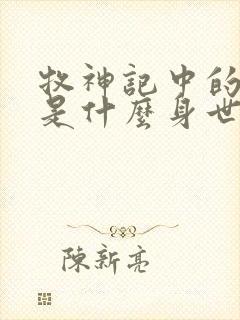 牧神記中的
是什麼身世
陳新亮